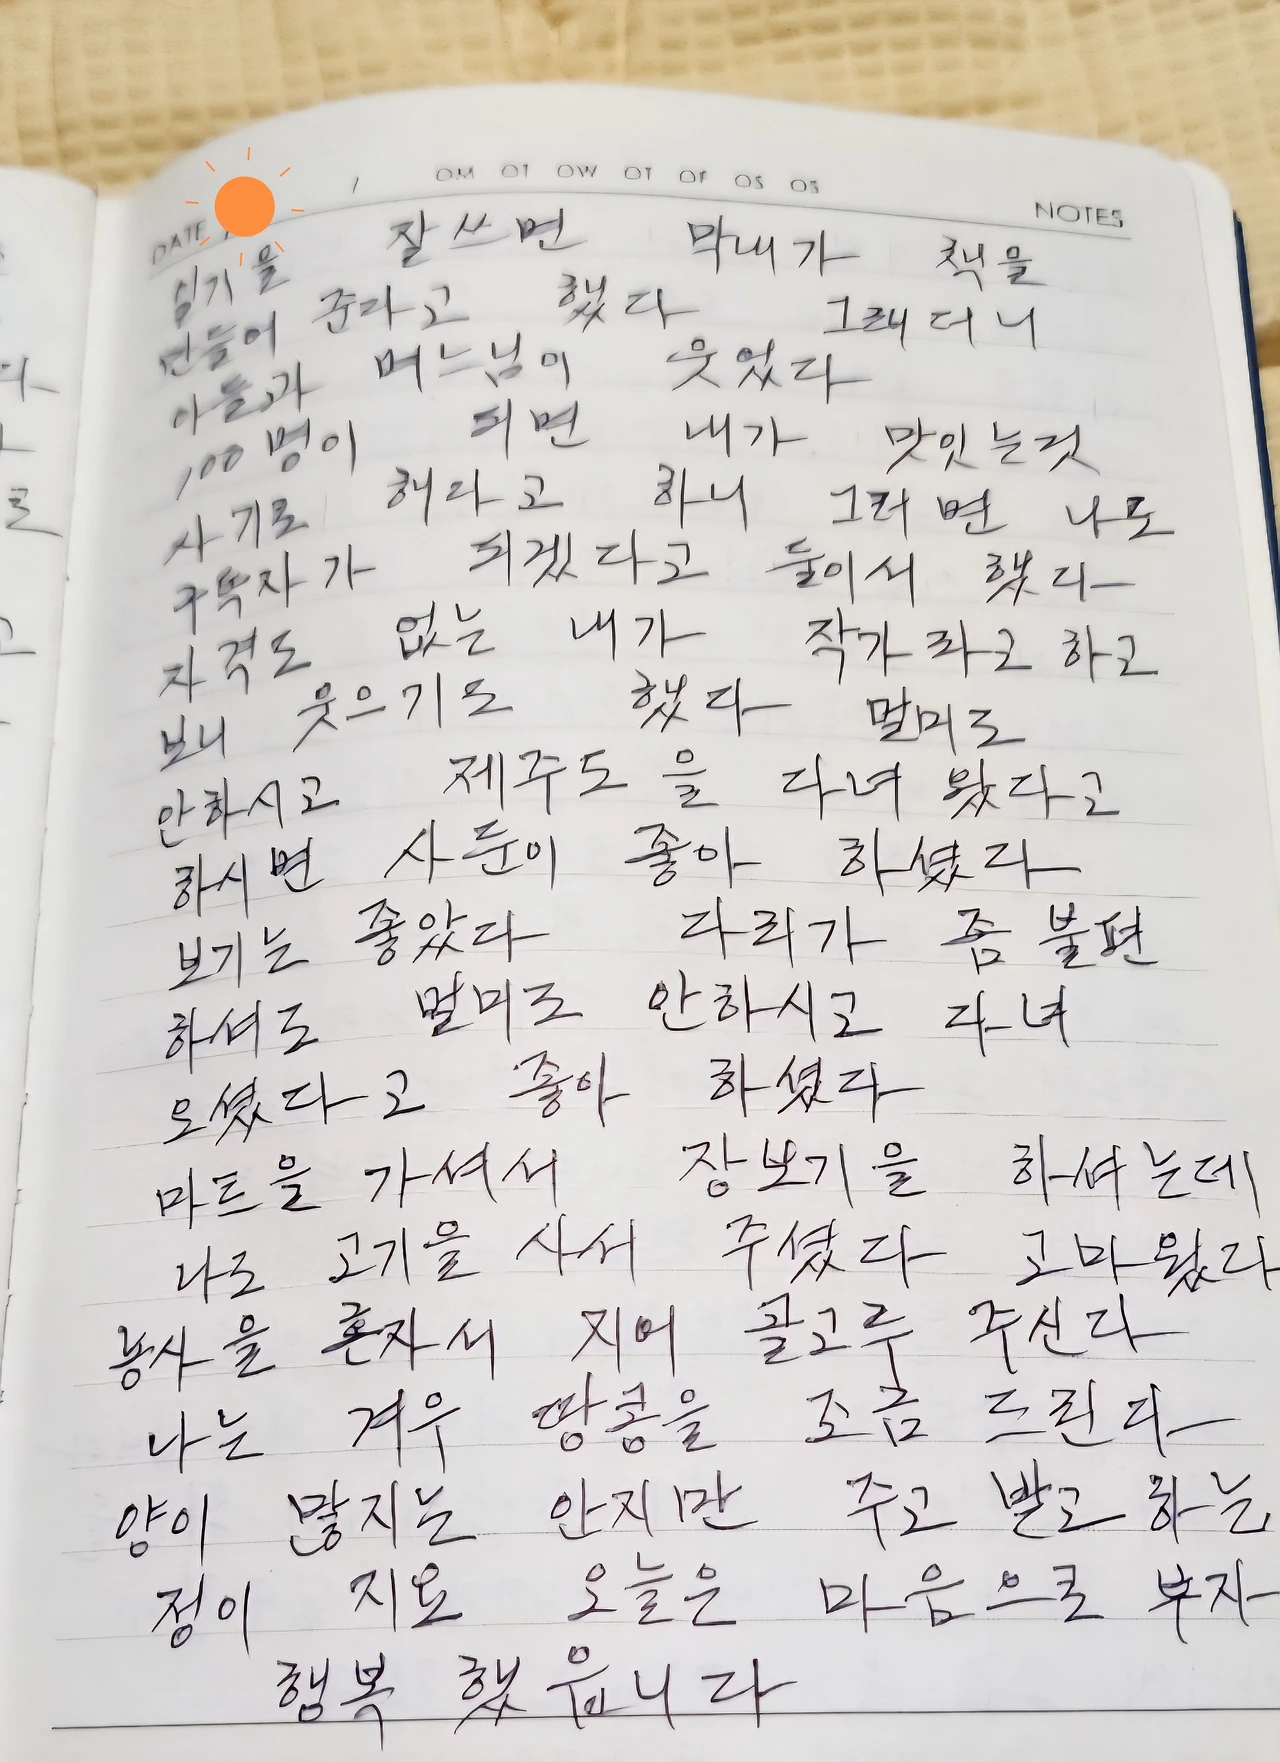 DATE / OM OT OW OT OF OS OS
NOTES
일기을 잘 쓰면 막내가 책을
만들어 준다고 했다 그래더니
아들과 며느님이 웃었다
100명이 되면 내가 맛있는것
사기로 허라고 하니 그러면 나도
구독자가 되겠다고 둘이서 했다
자격도 없는 내가 작가라고 하고
보니 웃으기도 했다 멀미도
안하시고 제주도을 다녀 왔다고
하시면 사둔이 좋아 하셨다
보기는 좋았다 다리가 좀 불편
하셔도 멀미도 안하시고 다녀
오셨다고 좋아 하셨다
마트을 가셔서 장보기을 하셔는데
나도 고기을 사서 주셨다 고마웠다
농사을 혼자서 지어 골고루 주신다
나는 겨우 땅콩을 조금 드린다
양이 많지는 안지만 주고 받고 하는
정이 지요 오늘은 마음으로 부자
행복 했읍니다